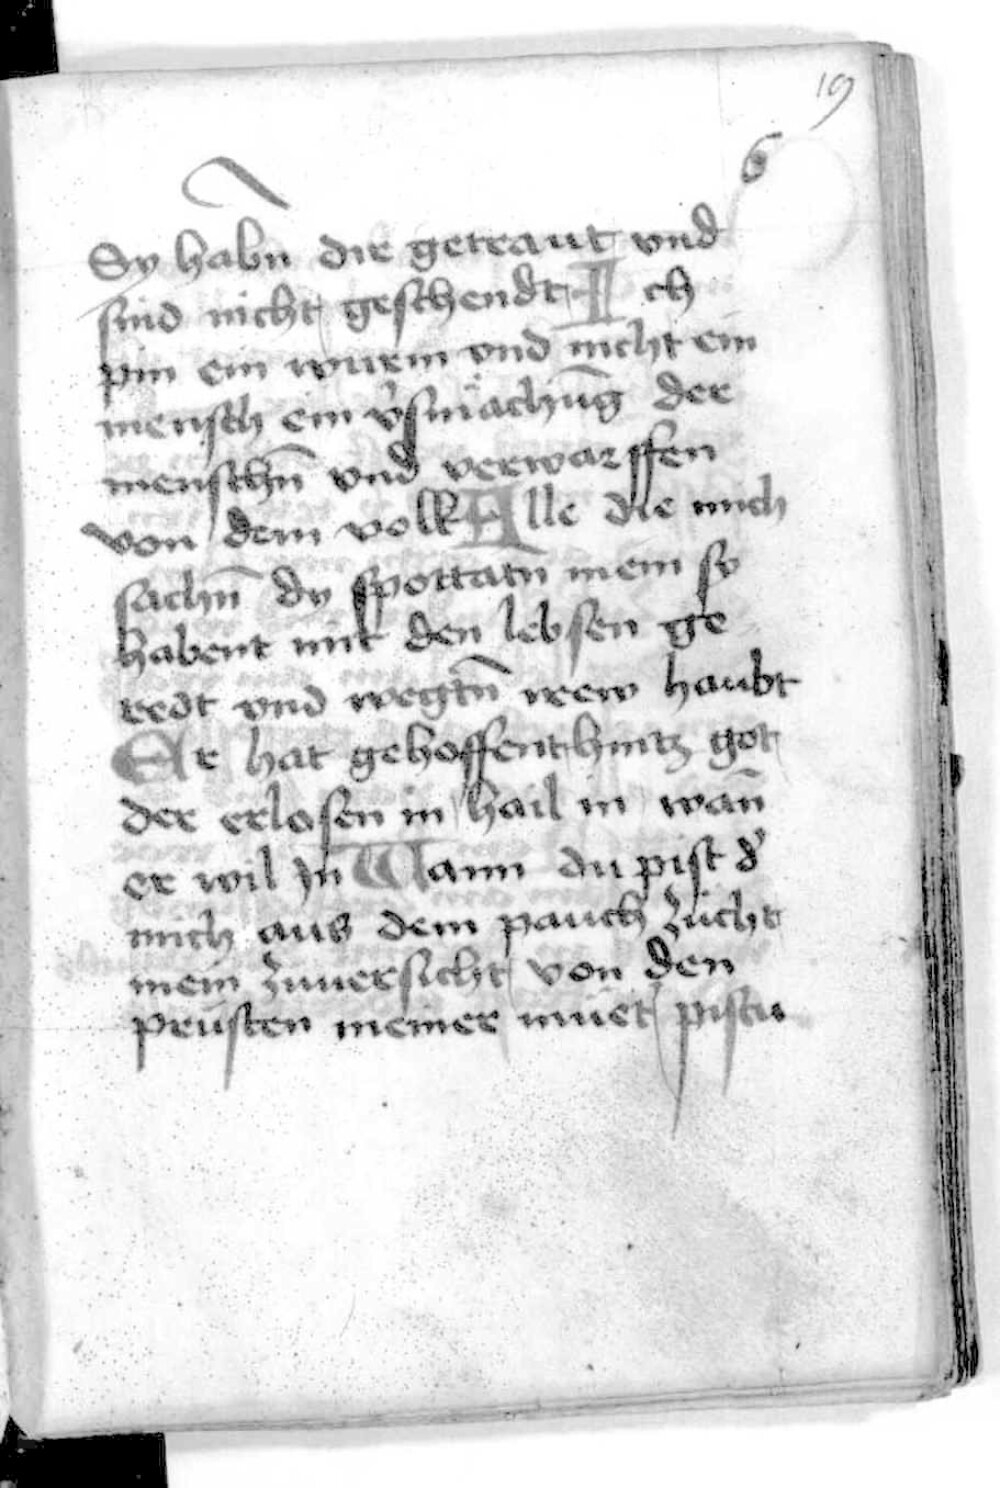 19
6
Sy habn̄ die getraut vnd
sind nicht geschendt Ich
pin ein wurm vnd nicht ein
mensch ein v̉smächūg der
menschn̄ vnd verwarffen
von dem volk Alle die mich
sachn̄ dy spottatn̄ mein sy
habent mit den lebsen ge
redt vnd wegtn̄ irew haubt
Er hat gehoffent hintz got
der erlosen in hail in wan̄
er wil jn̄ Wann du pist d̉
mich aus dem pauch zucht
mein zuuersicht von den
prüsten meiner muet pistu